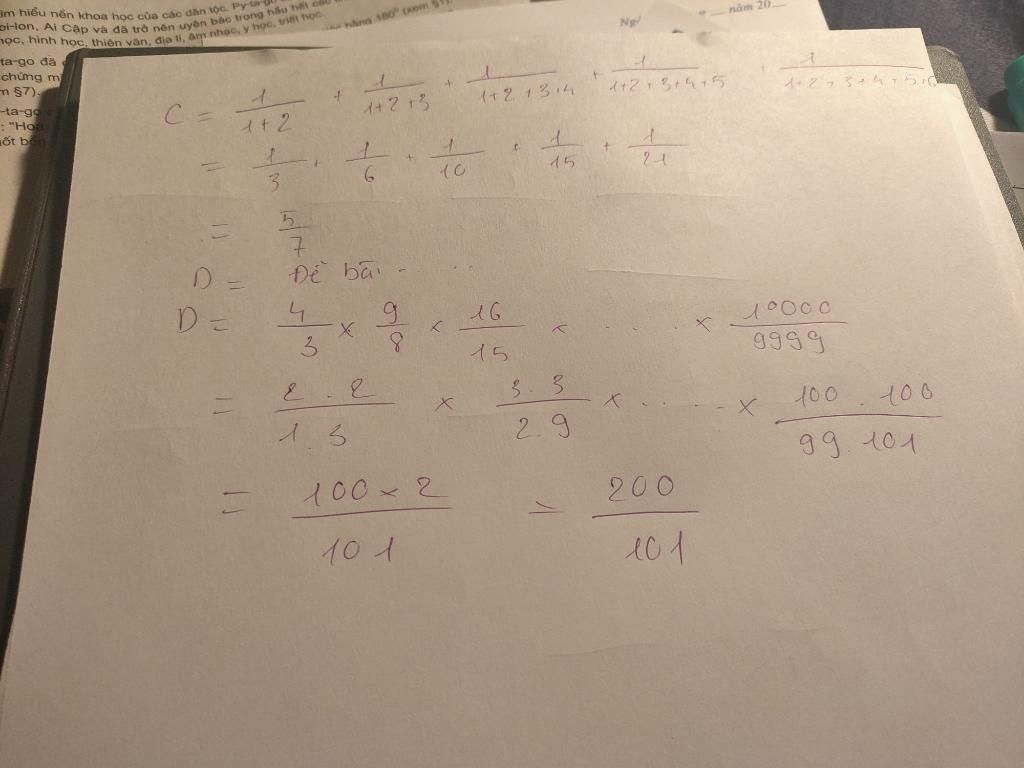 ìm hiểu nền khoa học của các dân tộc. Py-ta-go
Ai Cập và đã trở nên uyên bác trong hầu hết các
học, hình học, thiên văn, địa lí, âm nhạc, y học, triết học.
bằng 180° (xem §1).
năm 20
ta-go đã
chứng m
§7).
-ta-go
C = 1/(1+2) + 1/(1+2+3) + 1/(1+2+3+4) + 1/(1+2+3+4+5) + 1/(1+2+3+4+5+6)
= 1/3 + 1/6 + 1/10 + 1/15 + 1/21
= 5/7
D = Đề bài . . .
D = 4/3 × 9/8 × 16/15 × . . . . × 10000/9999
= 2.2/1.3 × 3.3/2.9 × . . . . × 100.100/99.101
= 100×2/101 = 200/101